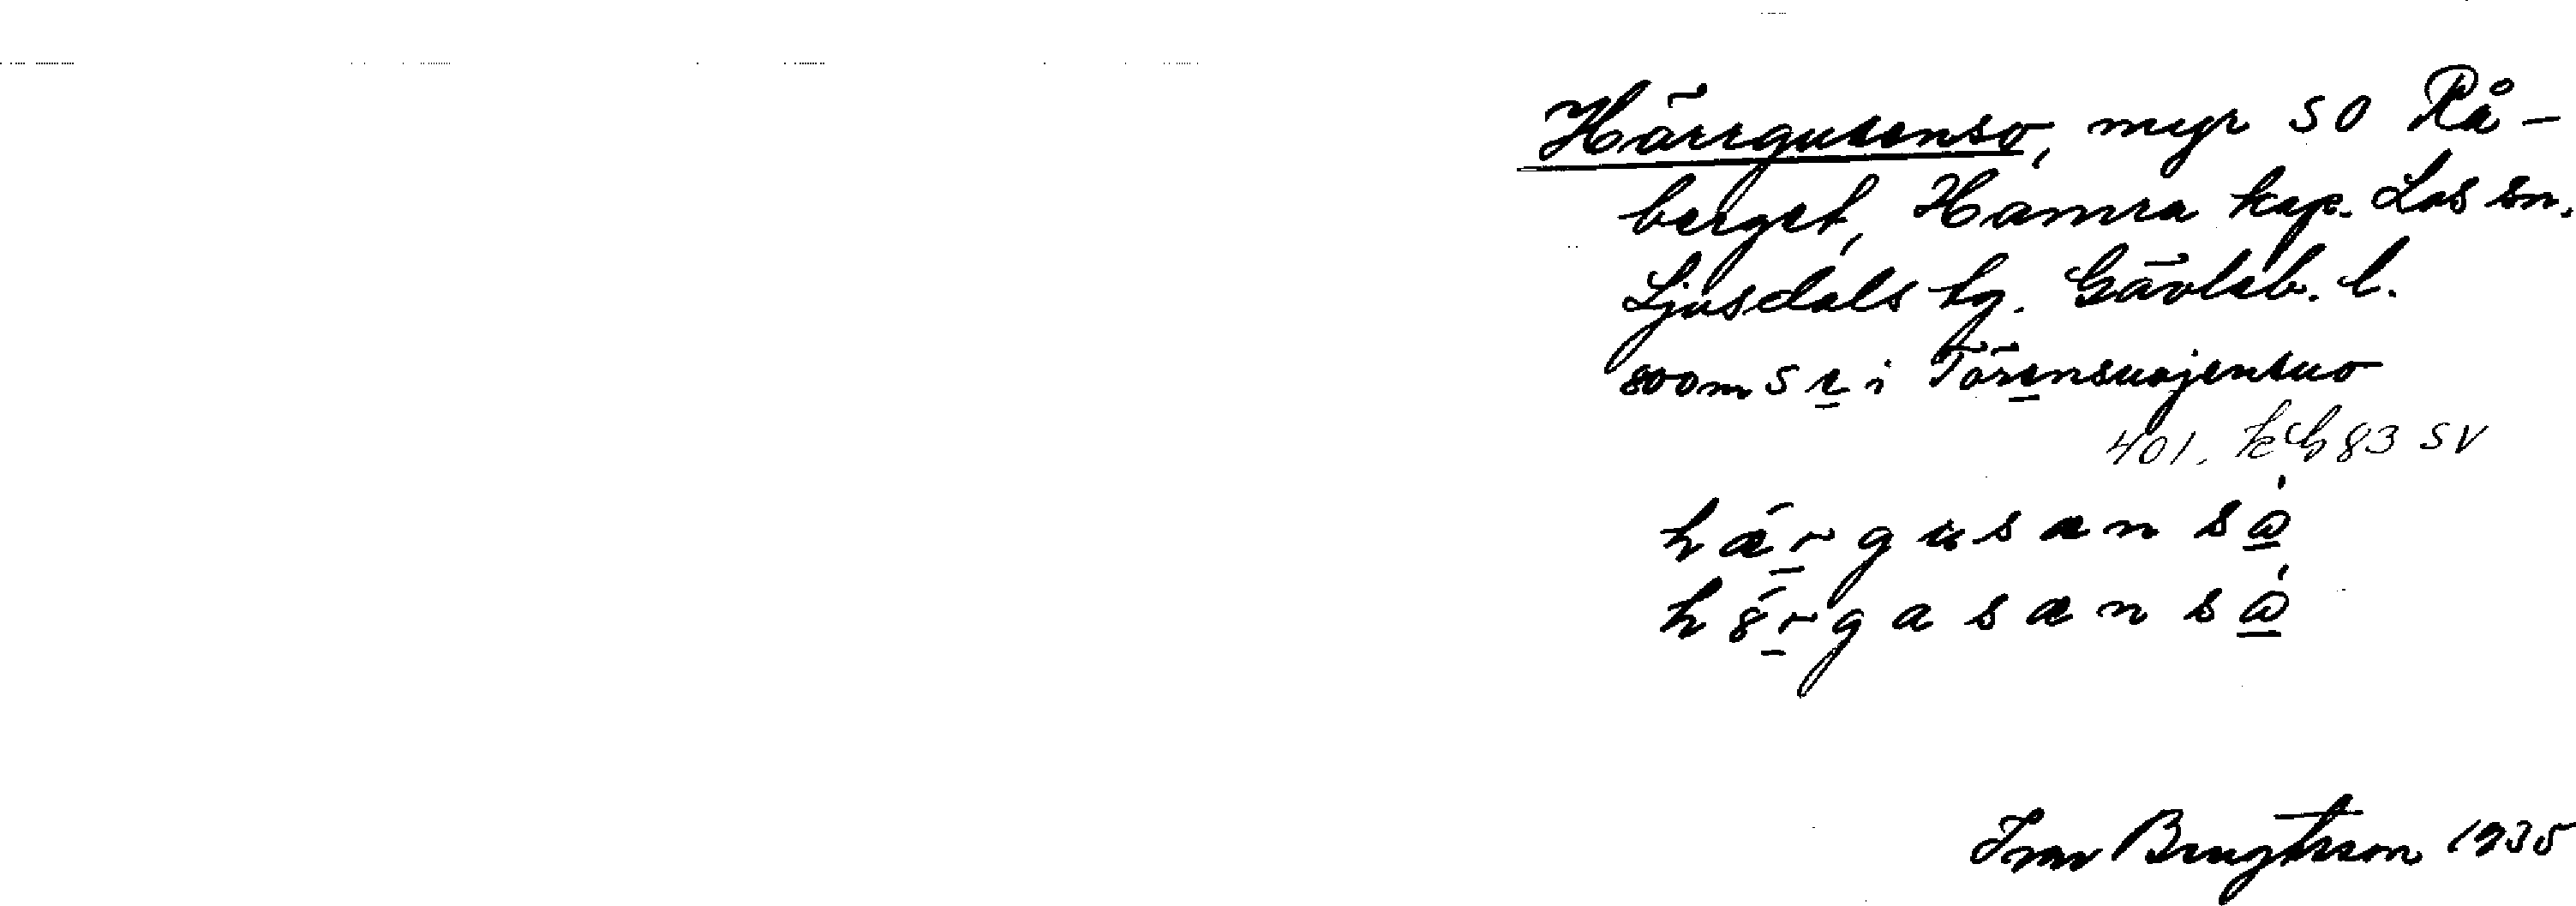 Härrgusensö, myr SO Rå-
berget, Hamra kap. Los sn.
Ljusdals tg. Gävleb. l.
800 m S r i Törensuojensuo
401. kbl 83 SV
hä́rgusansɷ̀
h8́rgasansɷ̀
Ivar Bengtsson 1935